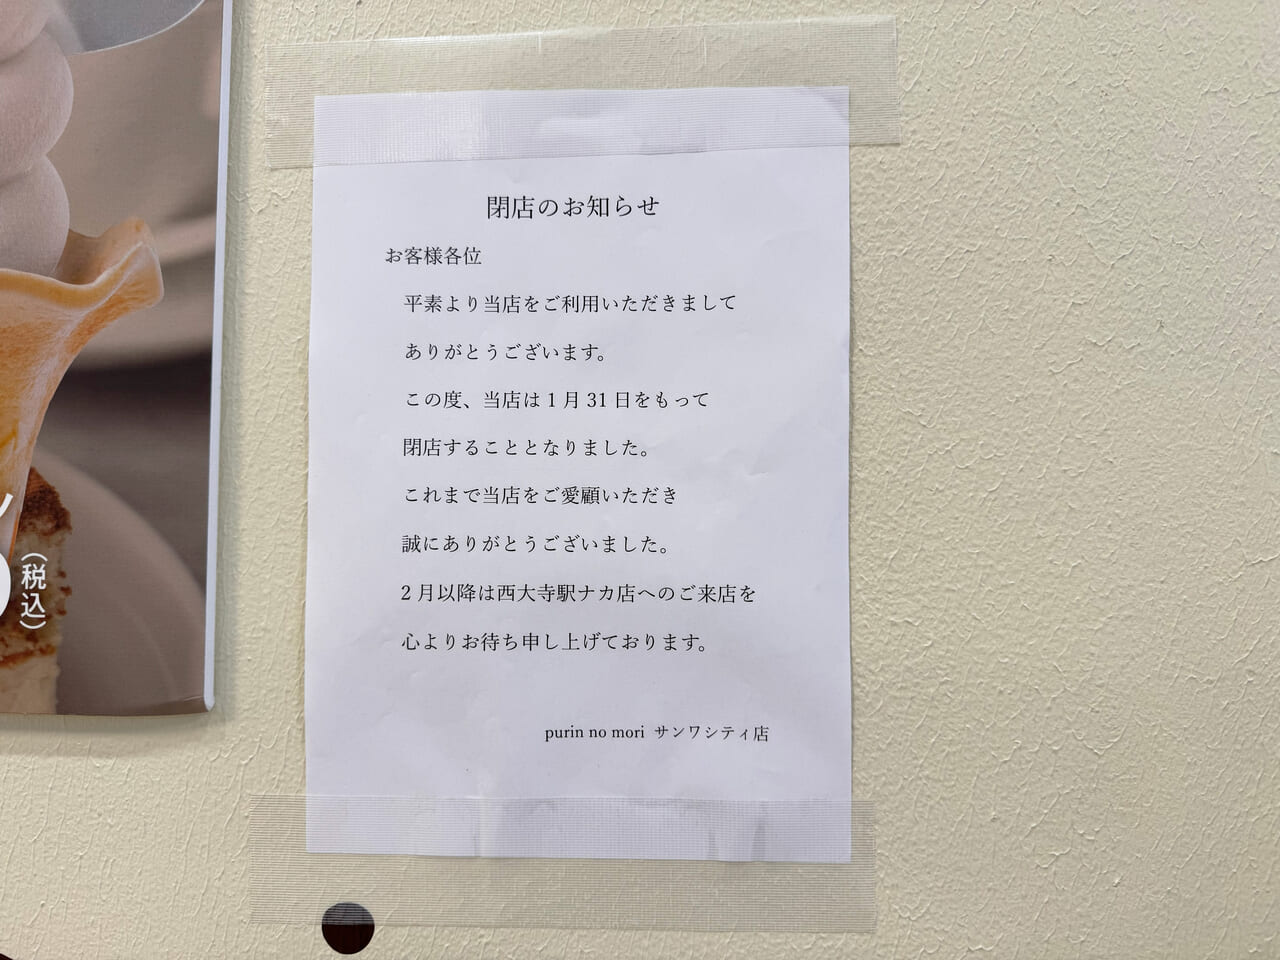 閉店のお知らせ
お客様各位
平素より当店をご利用いただきまして
ありがとうございます。
この度、当店は1月31日をもって
閉店することとなりました。
これまで当店をご愛顧いただき
誠にありがとうございました。
2月以降は西大寺駅ナカ店へのご来店を
心よりお待ち申し上げております。
purin no mori サンワシティ店
(税込)